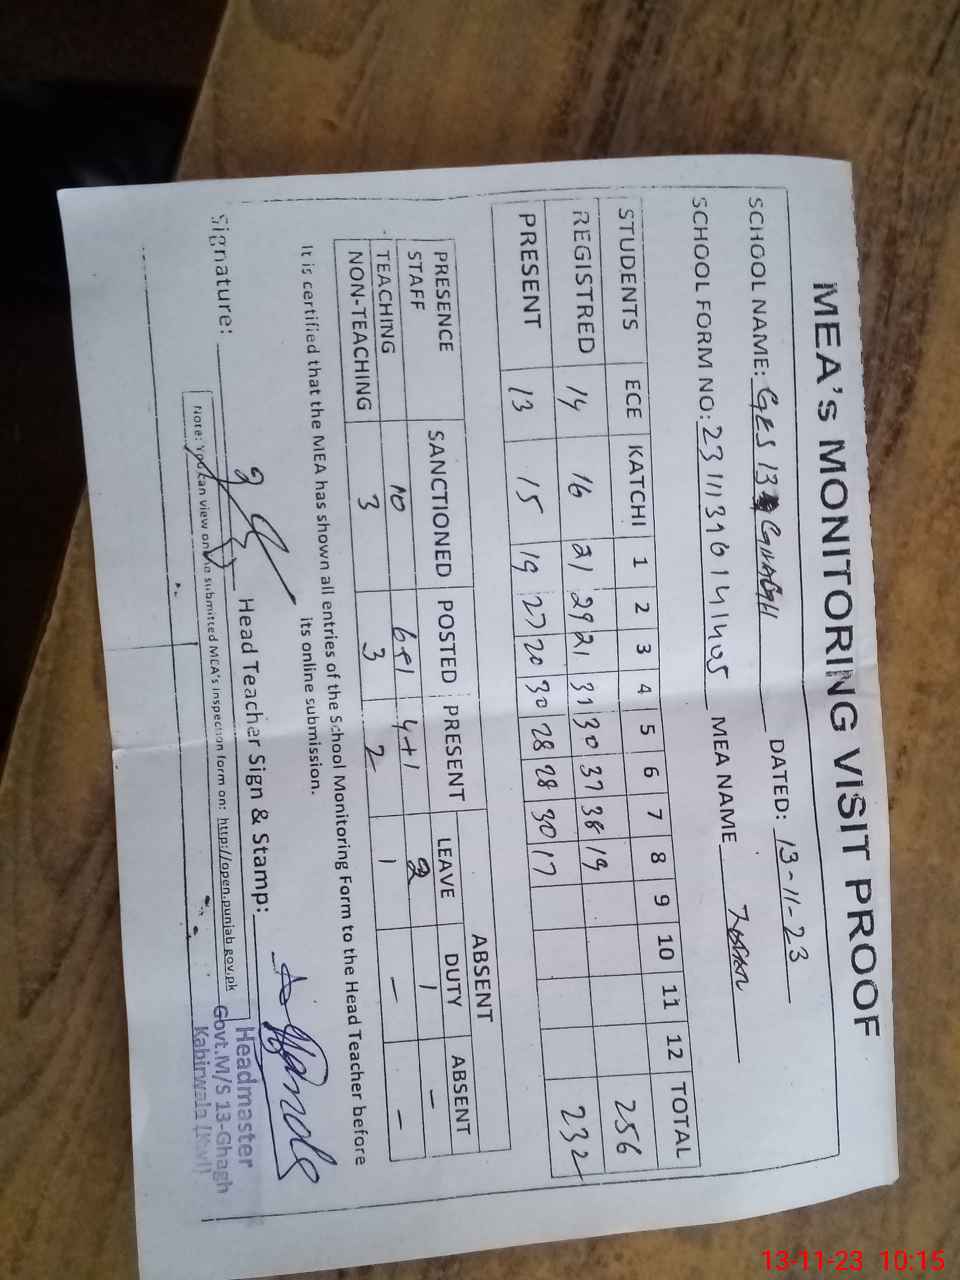 MEA's MONITORING VISIT PROOF
SCHOOL NAME: GES 13 GHAGH DATED: 13-11-23
SCHOOL FORM NO: MEA NAME
STUDENTS ECE KATCHI 1 2 3 4 5 6 7 8 9 10 11 12 TOTAL
REGISTRED 14 16 21 29 21 31 30 37 38 19 256
PRESENT 13 15 19 27 20 30 28 28 30 17 232
ABSENT
PRESENCE STAFF SANCTIONED POSTED PRESENT LEAVE DUTY ABSENT
TEACHING 10 6+1 4+1 2 1 –
NON-TEACHING 3 3 2 1 – –
It is certified that the MEA has shown all entries of the School Monitoring Form to the Head Teacher before
its online submission.
Signature: Head Teacher Sign & Stamp:
Headmaster
Govt.M/S 13-Ghagh
Kabirwala (Kwl)
Note: You can view online submitted MEA's inspection form on: http://open.punjab.gov.pk
13-11-23 10:15